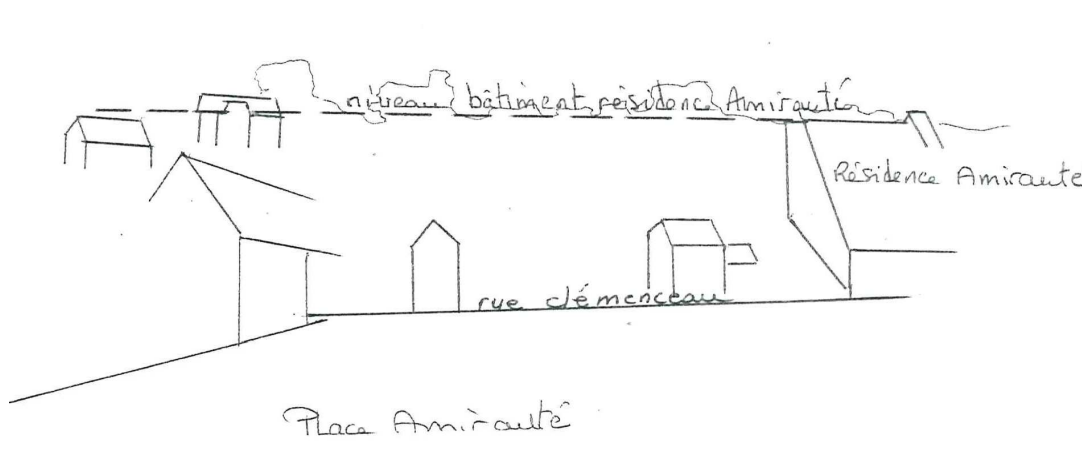 niveau bâtiment résidence Amirauté
Résidence Amirauté
rue clémenceau
Place Amirauté